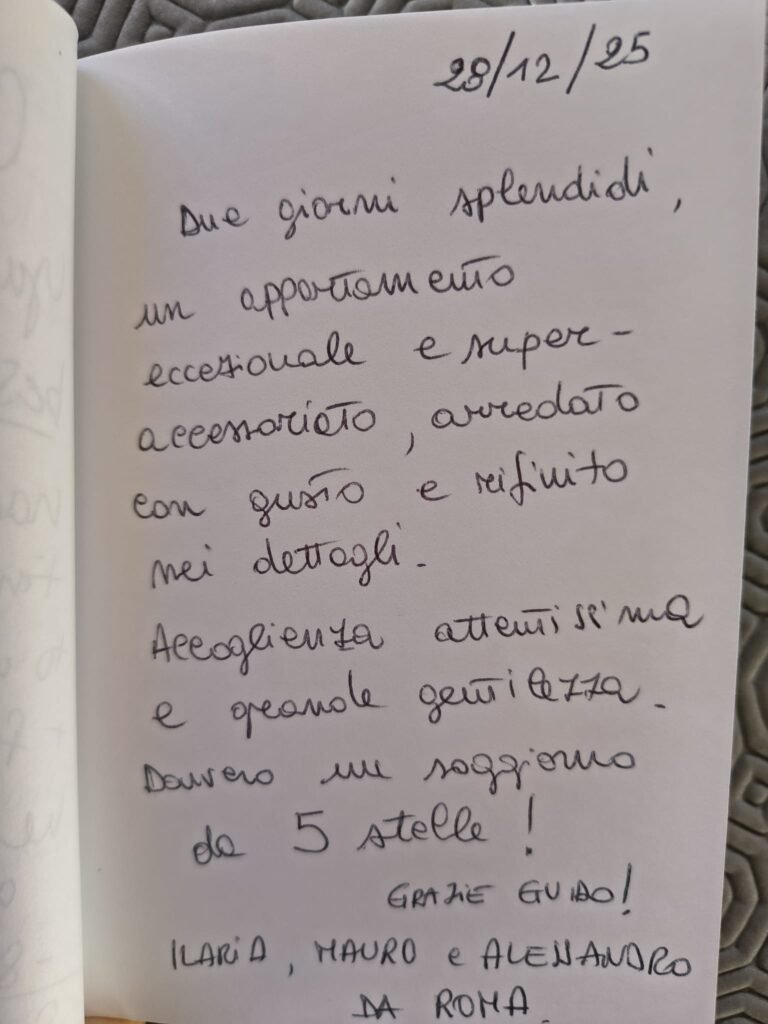 28/12/25
Due giorni splendidi,
un appartamento
eccezionale e super-
accessoriato, arredato
con gusto e rifinito
nei dettagli.
Accoglienza attentissima
e grande gentilezza.
Davvero un soggiorno
da 5 stelle!
GRAZIE GUIDO!
ILARIA, MAURO e ALESSANDRO
DA ROMA.